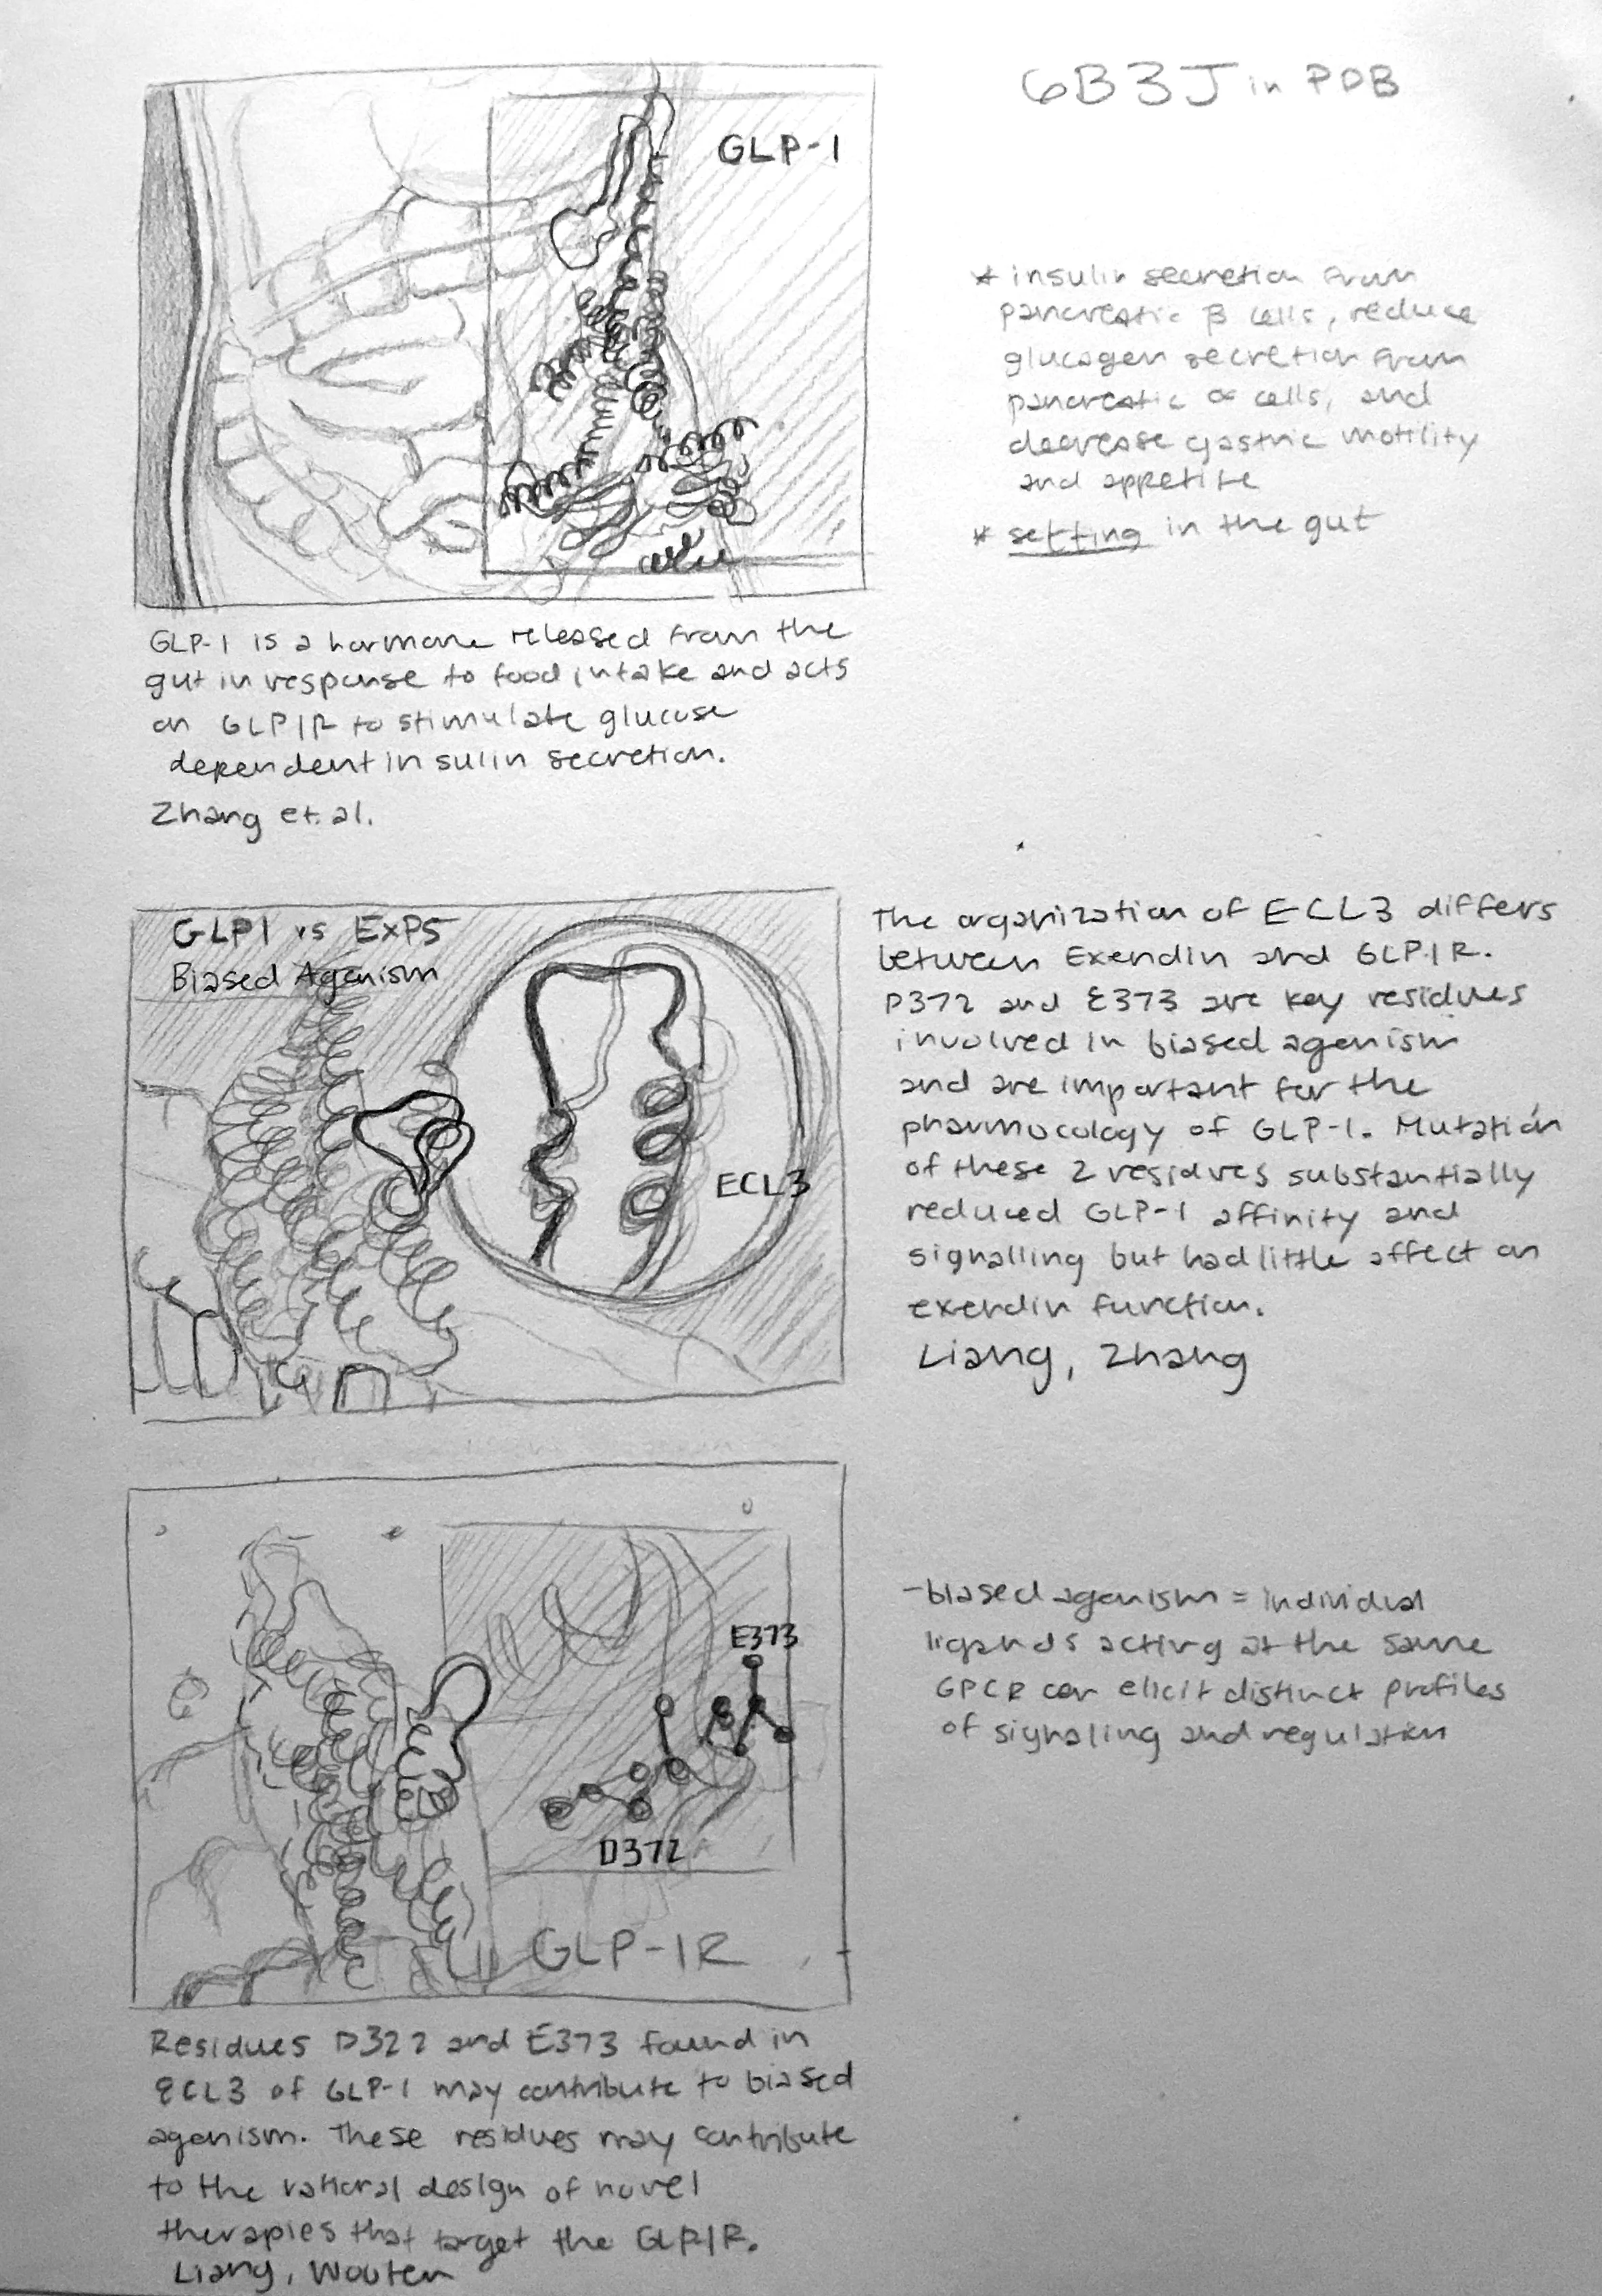 6B3J in PDB
GLP-1
* insulin secretion from
pancreatic β cells, reduce
glucagen secretion from
pancreatic α cells, and
decrease gastric motility
and appetite
* setting in the gut
GLP-1 is a hormone released from the
gut in response to food intake and acts
on GLP1R to stimulate glucose
dependent insulin secretion.
Zhang et. al.
GLP1 vs ExP5
Biased Agonism
ECL3
The organization of ECL3 differs
between Exendin and GLP1R.
D372 and E373 are key residues
involved in biased agonism
and are important for the
pharmocology of GLP-1. Mutation
of these 2 residues substantially
reduced GLP-1 affinity and
signalling but had little affect on
exendin function.
Liang, Zhang
E373
D372
GLP-1R
- biased agonism = individual
ligands acting at the same
GPCR can elicit distinct profiles
of signaling and regulation
Residues D322 and E373 found in
ECL3 of GLP-1 may contribute to biased
agonism. These residues may contribute
to the rational design of novel
therapies that target the GLP1R.
Liang, Wouten